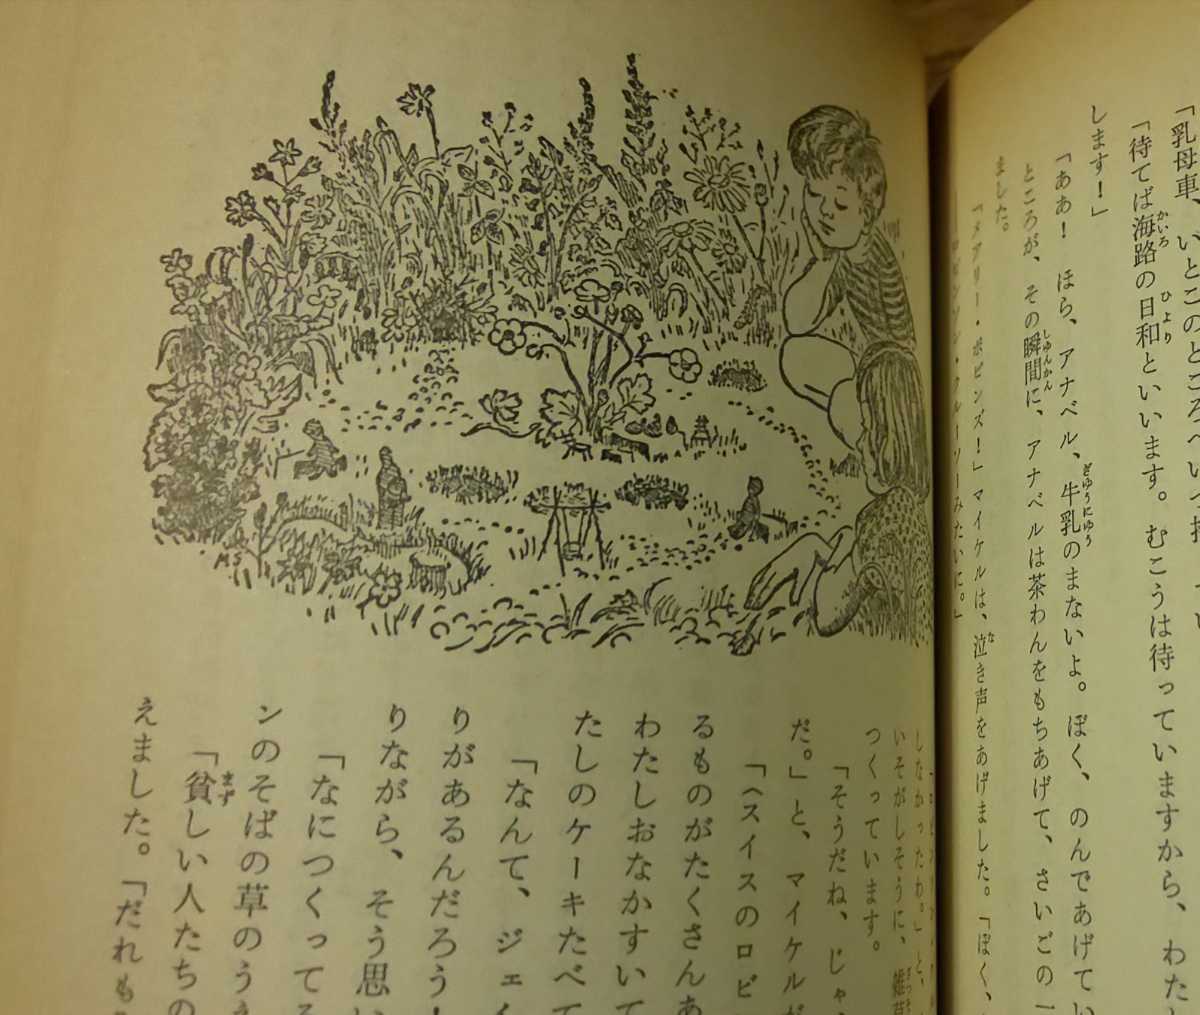 「乳母車、いとこのところへい
「待てば海路の日和といいます。むこうは待っていますから、わた
します！」
「ああ！　ほら、アナベル、牛乳のまないよ。ぼく、のんであげてい
ところが、その瞬間に、アナベルは茶わんをもちあげて、さいごの一
ました。
「メアリー・ポピンズ！」マイケルは、泣き声をあげました。「ぼく、
ルーソーみたいに。」
しなかったわ。」と、
いそがしそうに、雑草
つくっています。
「そうだね、じゃ
だ。」と、マイケルが
「〈スイスのロビ
るものがたくさんあ
わたしおなかすいて
たしのケーキたべて
「なんて、ジェイ
りがあるんだろう！
りながら、そう思い
「なにつくってる
ンのそばの草のうえ
「貧しい人たちの
えました。「だれも